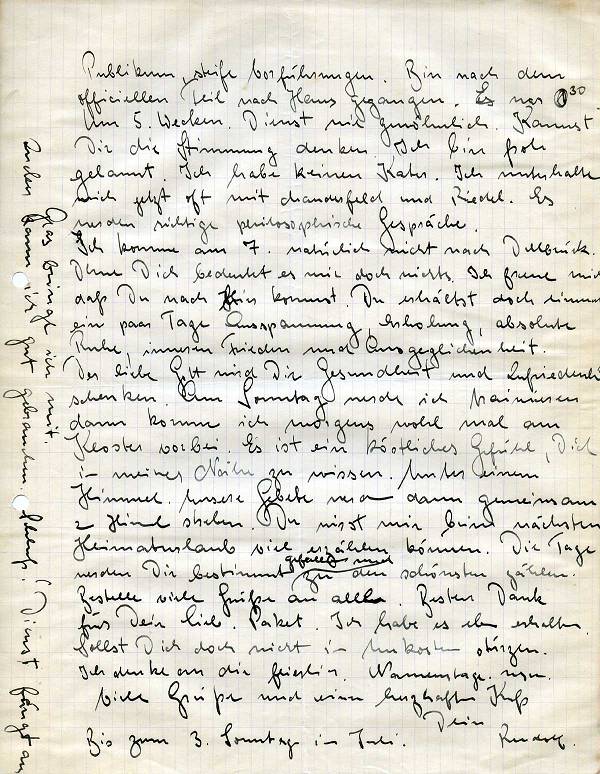 Publikum, steife Vorführungen. Bin nach dem
officiellen Teil nach Haus gegangen. Es war 0³⁰
Um 5. Wecken. Dienst wie gewöhnlich. Kannst
Dir die Stimmung denken. Ich bin froh
gelaunt. Ich habe keinen Kater. Ich unterhalte
mich jetzt oft mit und Riedel. Es
werden richtige philosophische Gespräche.
Ich komme am 7. natürlich nicht nach Dellbrück.
Ohne Dich bedeutet es mir doch nichts. Ich freue mich
daß Du nach kommst. Du erhältst doch einmal
ein paar Tage Ausspannung, Erholung, absolute
Ruhe, inneren Frieden und Ausgeglichenheit.
Der liebe Gott wird Dir Gesundheit und Zufriedenheit
schenken. Am Sonntag werde ich trainieren
dann komme ich morgens wohl mal am
Kloster vorbei. Es ist ein köstliches Gefühl, Dich
in meiner Nähe zu wissen. Unter einem
Himmel. Unsere Gebete werden dann gemeinsam
z Himmel streben. Du wirst mir beim nächsten
Heimaturlaub viel erzählen können. Die Tage
werden Dir bestimmt gefallen und zu den schönsten zählen.
Bestelle viele Grüße an alle. Besten Dank
für Dein lieb. Paket. Ich habe es eben erhalten.
Sollst Dich doch nicht in Unkosten stürzen.
Ich denke an die feierlich. Namenstage usw.
Viele Grüße und einen herzhaften Kuß
Dein
Bis zum 3. Sonntag im Juli. Rudolf.
Glas bringe ich mit.
kann ich gut gebrauchen. Schluß! Dienst fängt an